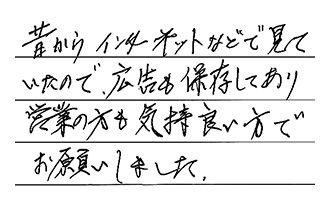 昔から インターネットなどで見て
いたので、広告も保存してあり
営業の方も気持良い方で
お願いしました。